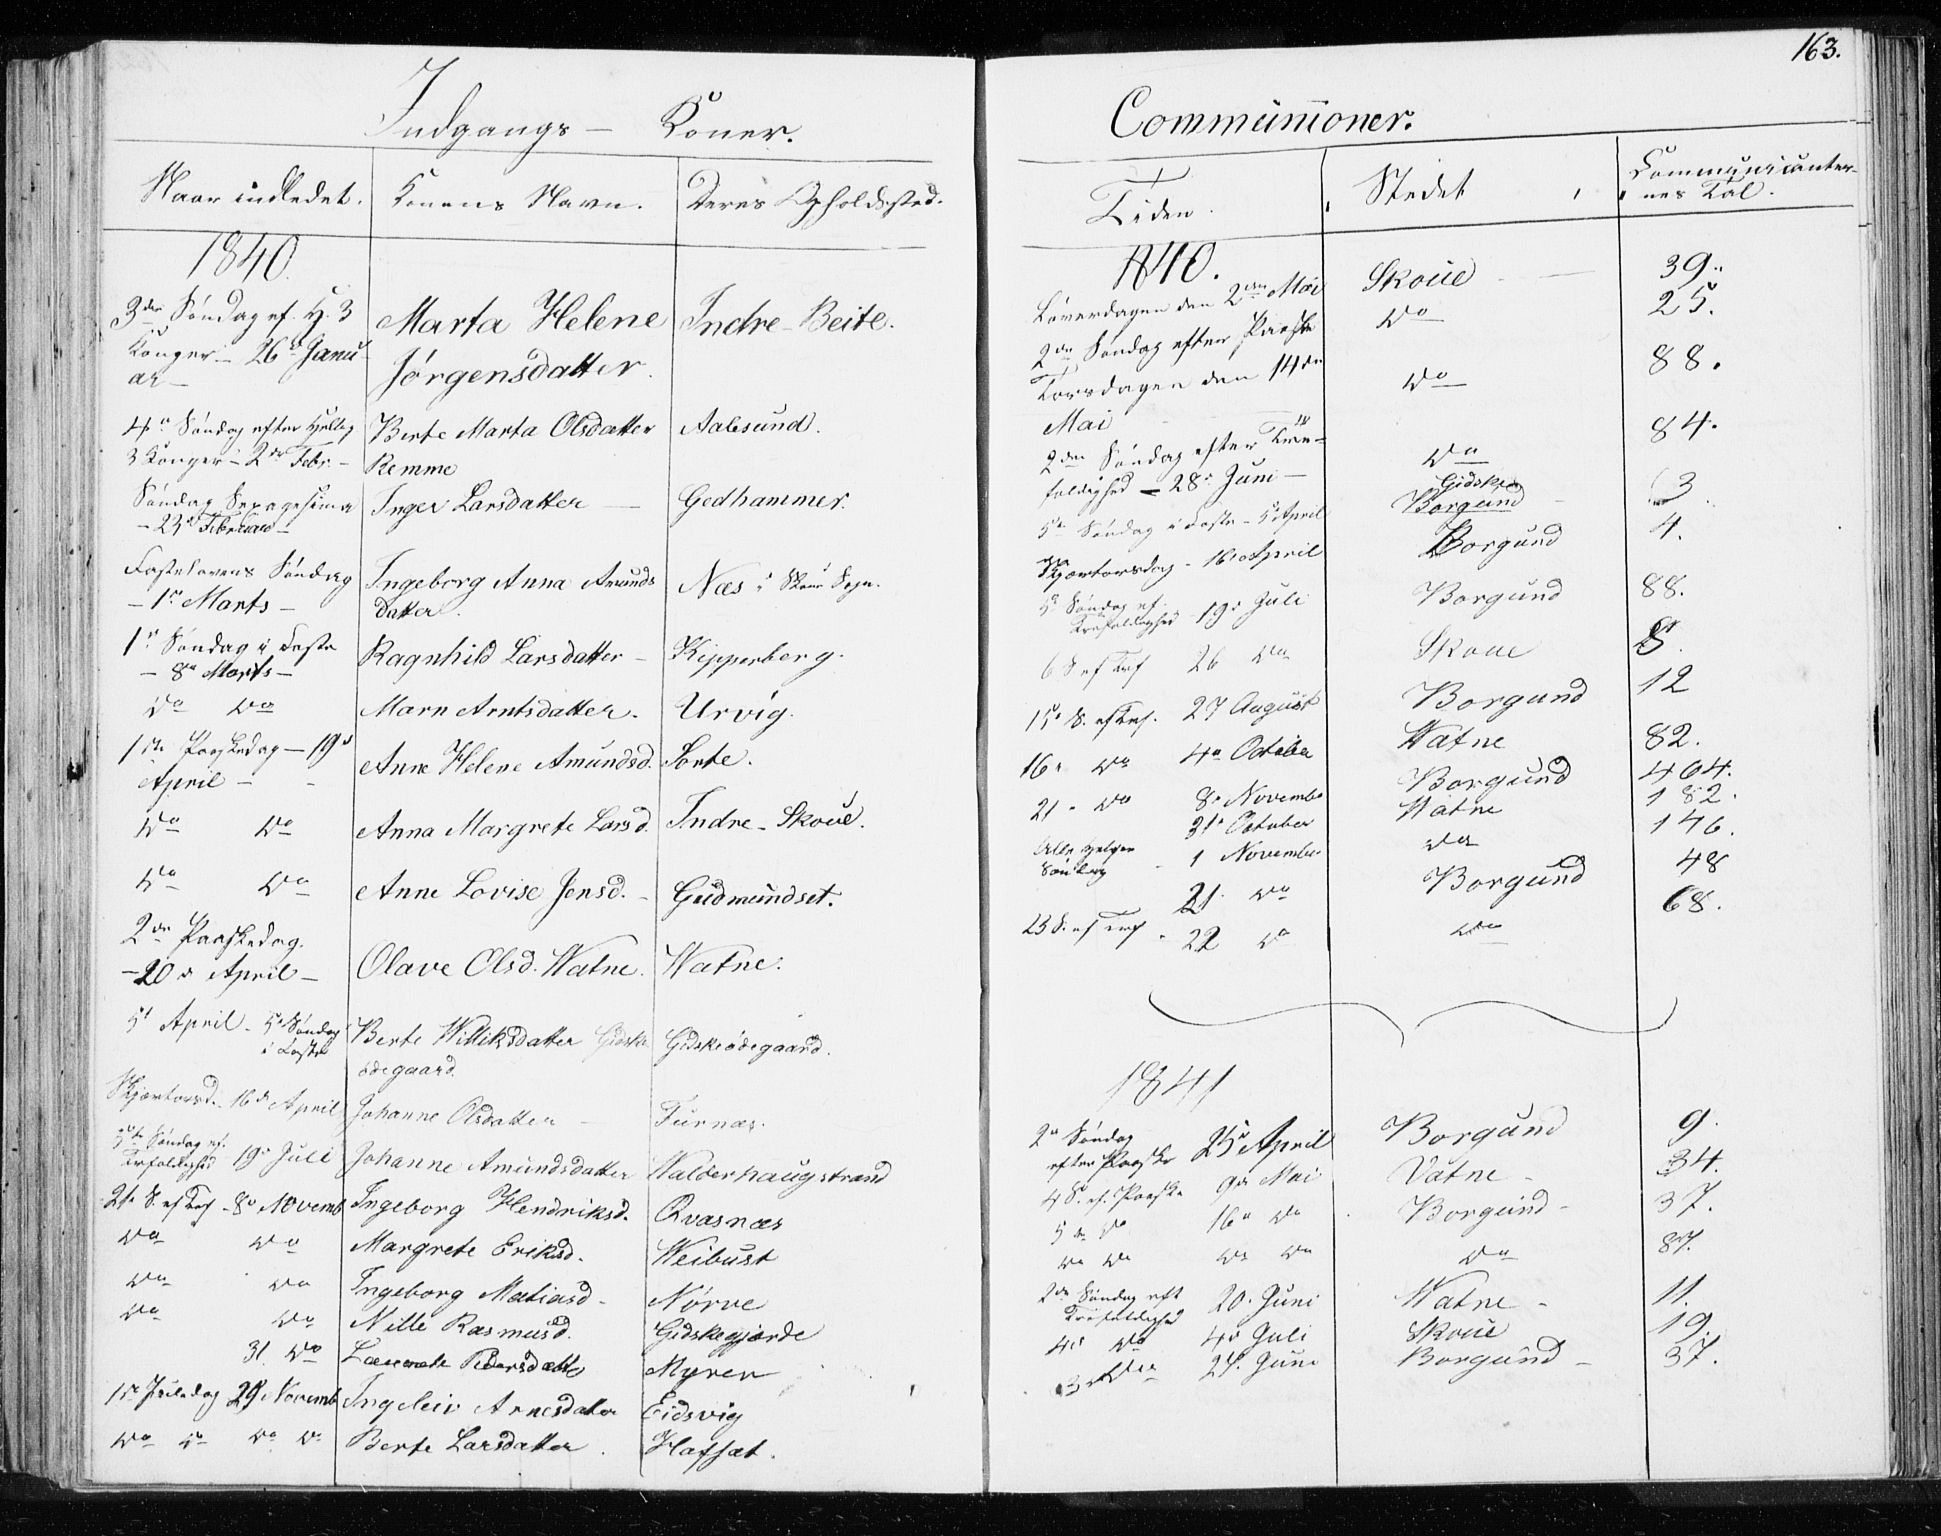 163.
Indgangs- Koner.
Naar indledet. Konens Navn. Deres Opholdssted.
1840
3die Søndag ef. H. 3 Marta Helene Indre-Beite.
Konger - 26de Janu-
ar - Jørgensdatter.
4de Søndag efter Hellig Berte Marta Olsdatter Aalesund.
3 Konger - 2den Febr. - Remme
Søndag Sexagesima Inger Larsdatter - Gedhammer.
- 23de Februar -
Fastelavens Søndag Ingeborg Anna Amunds Næs i Skoue Sogn.
- 1ste Marts - datter.
1ste Søndag i Faste Ragnhild Larsdatter - Kipperberg.
- 8de Marts -
do do Marn Arntsdatter. Urvig.
1ste Paaskedag - 19de Anne Helene Amundsd. Sorte.
April -
do do Anna Margrete Larsd. Indre-Skoue.
do do Anne Lovise Jensd. - Gudmundset.
2den Paaskedag.
- 20de April - Olave Olsd. Watne. Watne.
5te April - 5te Søndag Berte Williksdatter Gidske Gidskeødegaard.
i Faste ødegaard.
Skjærtorsd. 16de April Johanne Olsdatter - Furnæs.
5te Søndag ef.
Trefoldighed 19de Juli Johanne Amundsdatter Walderhaugstrand
21de S. ef Tref - 8de Novemb Ingeborg Hendriksd. Qvasnæs
do do Margrete Eriksd. Weibust
do do Ingeborg Matiasd - Nørve
do do Nille Rasmusd. Gidskegjærde
31. do Pedersdatter Myren
1ste Juledag 29 Novemb Ingeleiv Arnesdatter Eidsvig
do do do do Berte Larsdatter. Hafsæt.
Communioner.
Tiden. Stedet Communicanter-
nes Tal.
1840.
Løverdagen den 2den Mai Skoue 39.
2den Søndag efter Paaske do 25.
Torsdagen den 14den do 88.
Mai
2den Søndag efter Tre- do 84.
foldighed - 28de Juni -
Gidske
5te Søndag i Faste - 5te April Borgund 3
Skjærtorsdag - 16de April Borgund 4.
5te Søndag ef.
Trefoldighed - 19de Juli Borgund 88.
6 S ef Tref 26 do Skoue 8.
15de S. ef Tref. 27 August Borgund 12
16de do 4de October Watne 82.
21de do 8de Novembr Borgund 464.
31te October Watne 182.
Alle Helgen
Søndag - 1 November do 146.
21. do Borgund 48
23 S. ef Tref - 22 do do 68.
1841
2den Søndag
efter Paaske 25de April Borgund 9.
4 S. ef. Paaske 9de Mai Vatne - 34.
5te do 16de do Borgund - 37.
do do do do do 87.
2den Søndag eft
Trefoldighed 20de Juni Watne - 11.
4de do 4de Juli Skoue 19
3die do 27. Juni Borgund - 37.